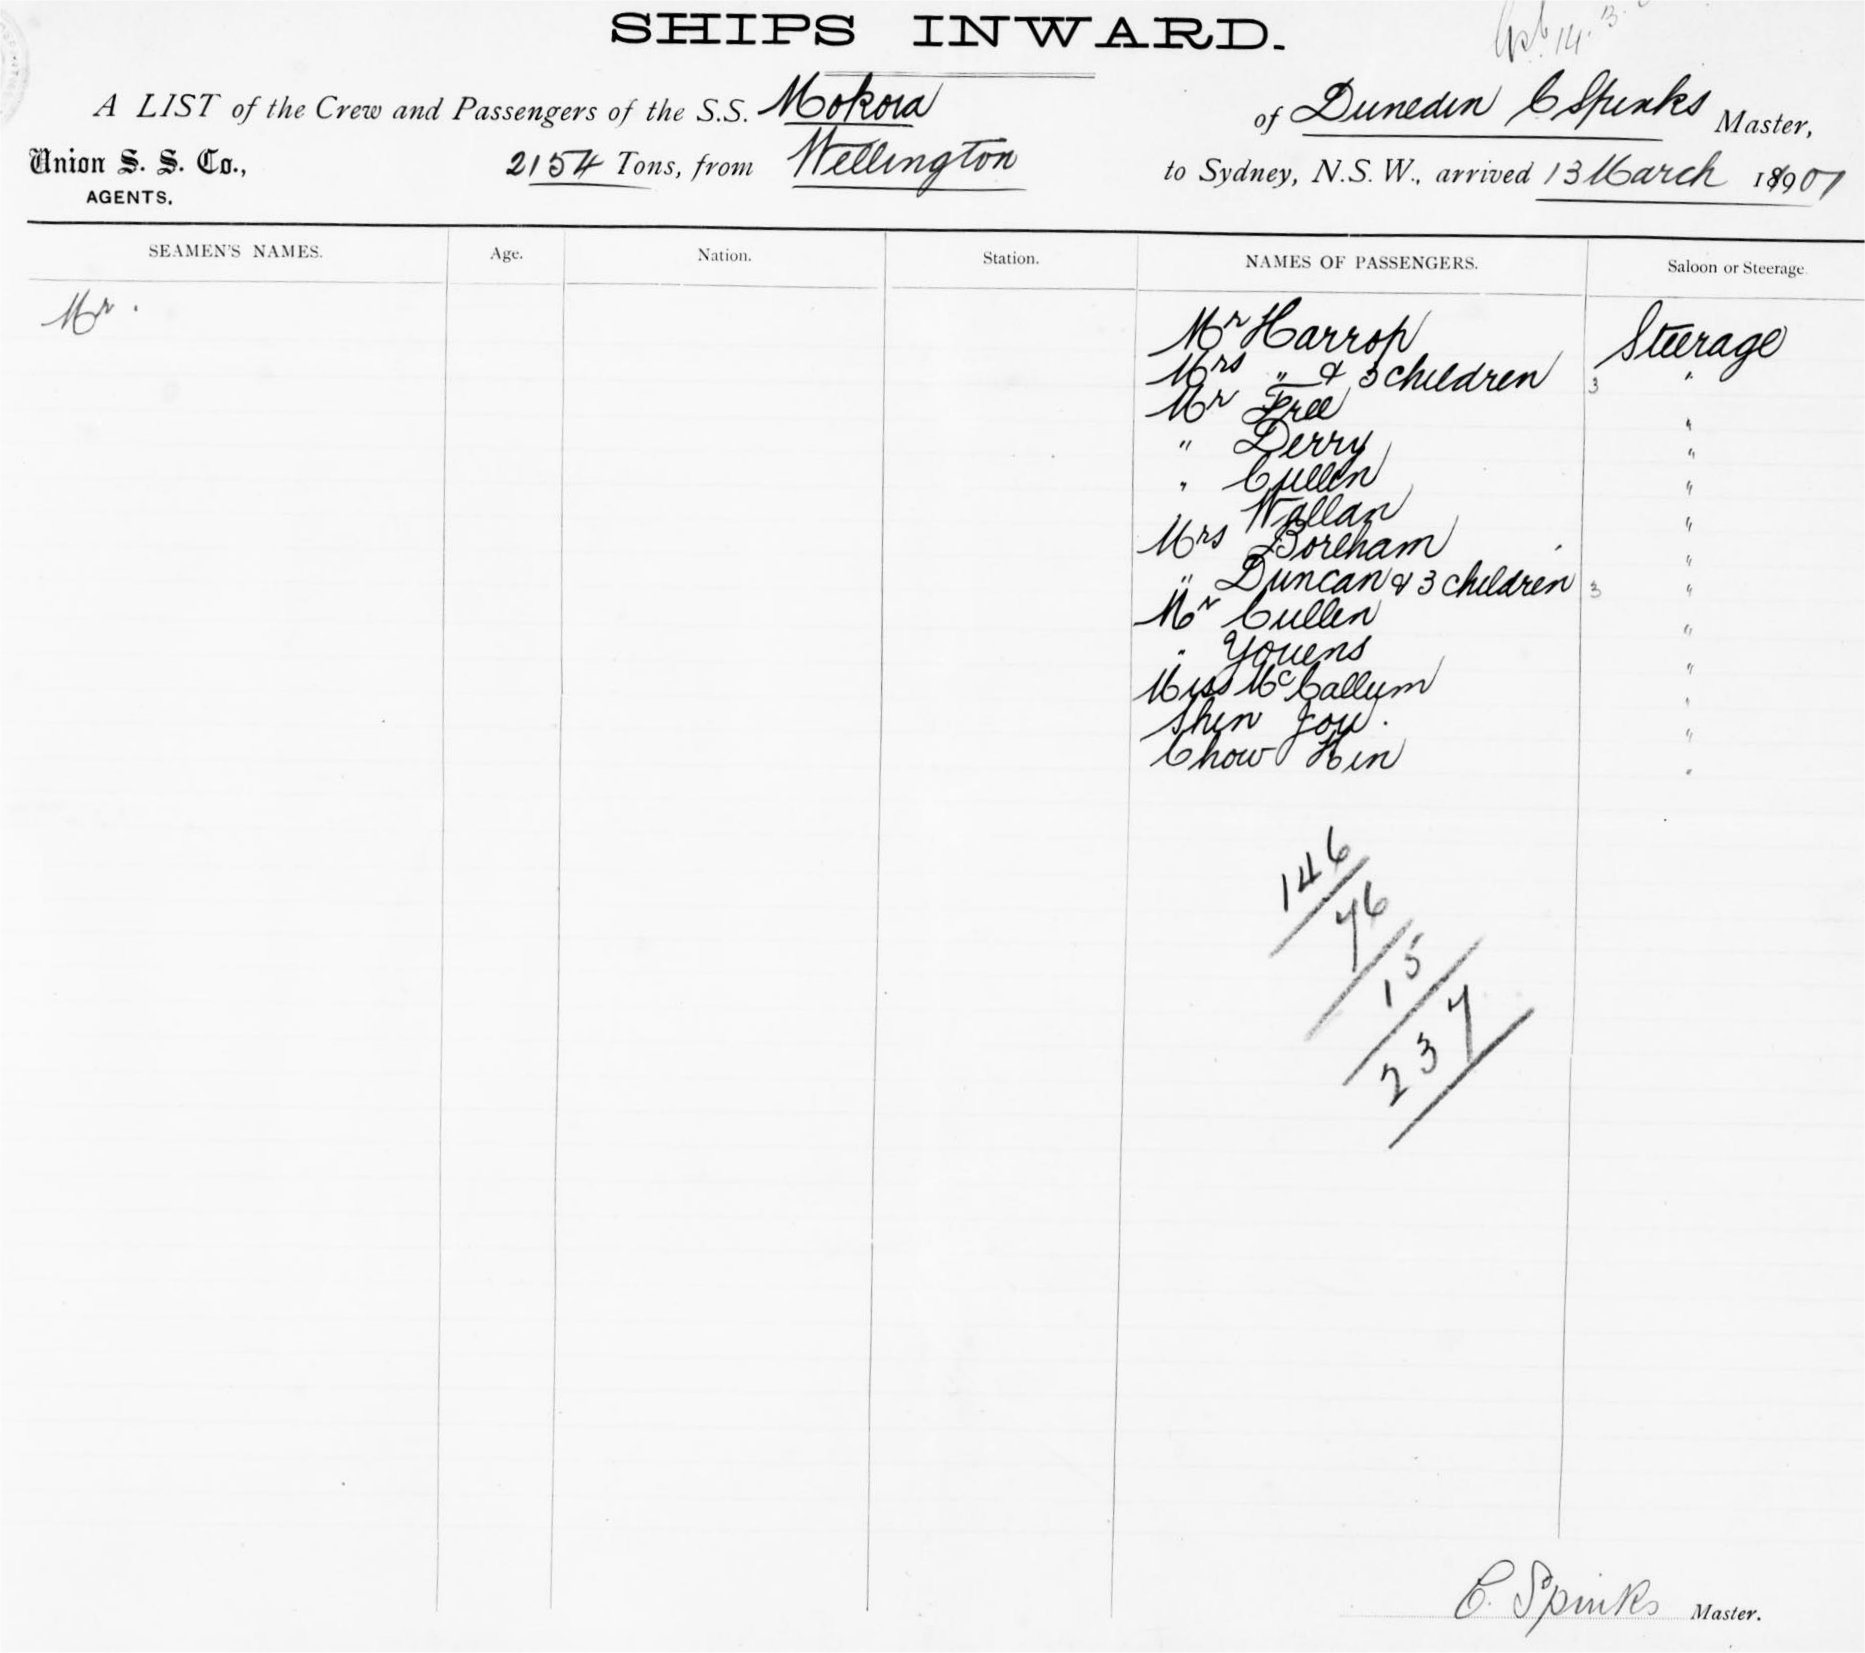 SHIPS INWARD.
14.3.
A LIST of the Crew and Passengers of the S.S. Mokoia of Dunedin C Spinks Master,
Union S. S. Co., AGENTS. 2154 Tons, from Wellington to Sydney, N.S.W., arrived 13 March 18901
SEAMEN'S NAMES. Age. Nation. Station. NAMES OF PASSENGERS. Saloon or Steerage
Mr. Mr Harrop Steerage
Mrs " & 3 children 3 "
Mr Free "
" Derry "
" Cullen "
Wallan "
Mrs Boreham "
" Duncan & 3 children 3 "
Mr Cullen "
" Youens "
Miss McCallum "
Shin Jou. "
Chow Hin "
146
76
15
237
C. Spinks Master.